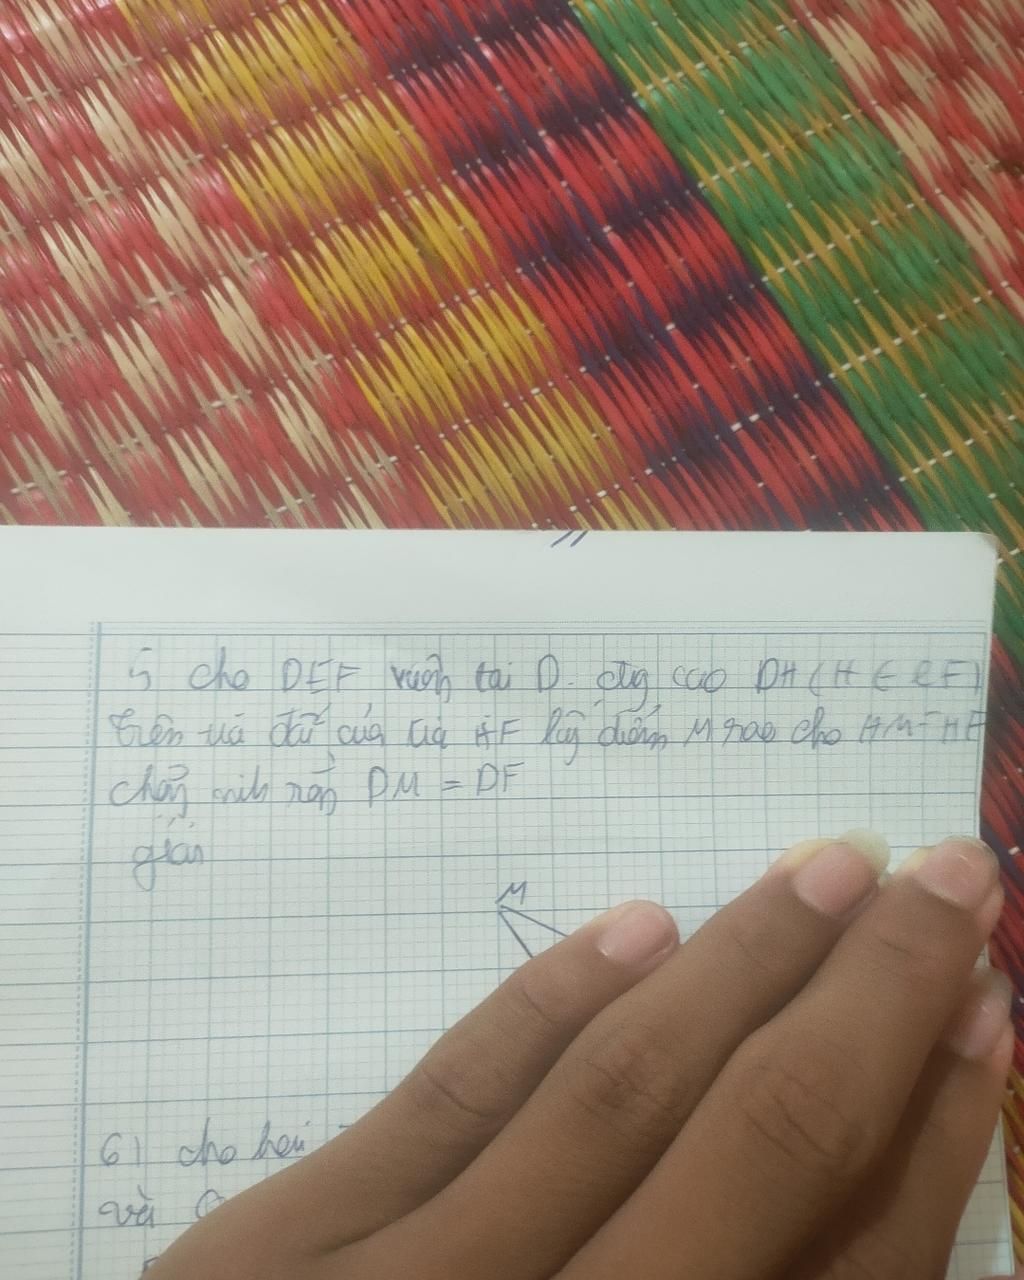 5 cho DEF vuông tại D. đường cao DH (H ∈ EF)
trên tia đối của tia HF lấy điểm M sao cho HM = HF
chứng minh rằng DM = DF
giải
M
6) cho hai
và